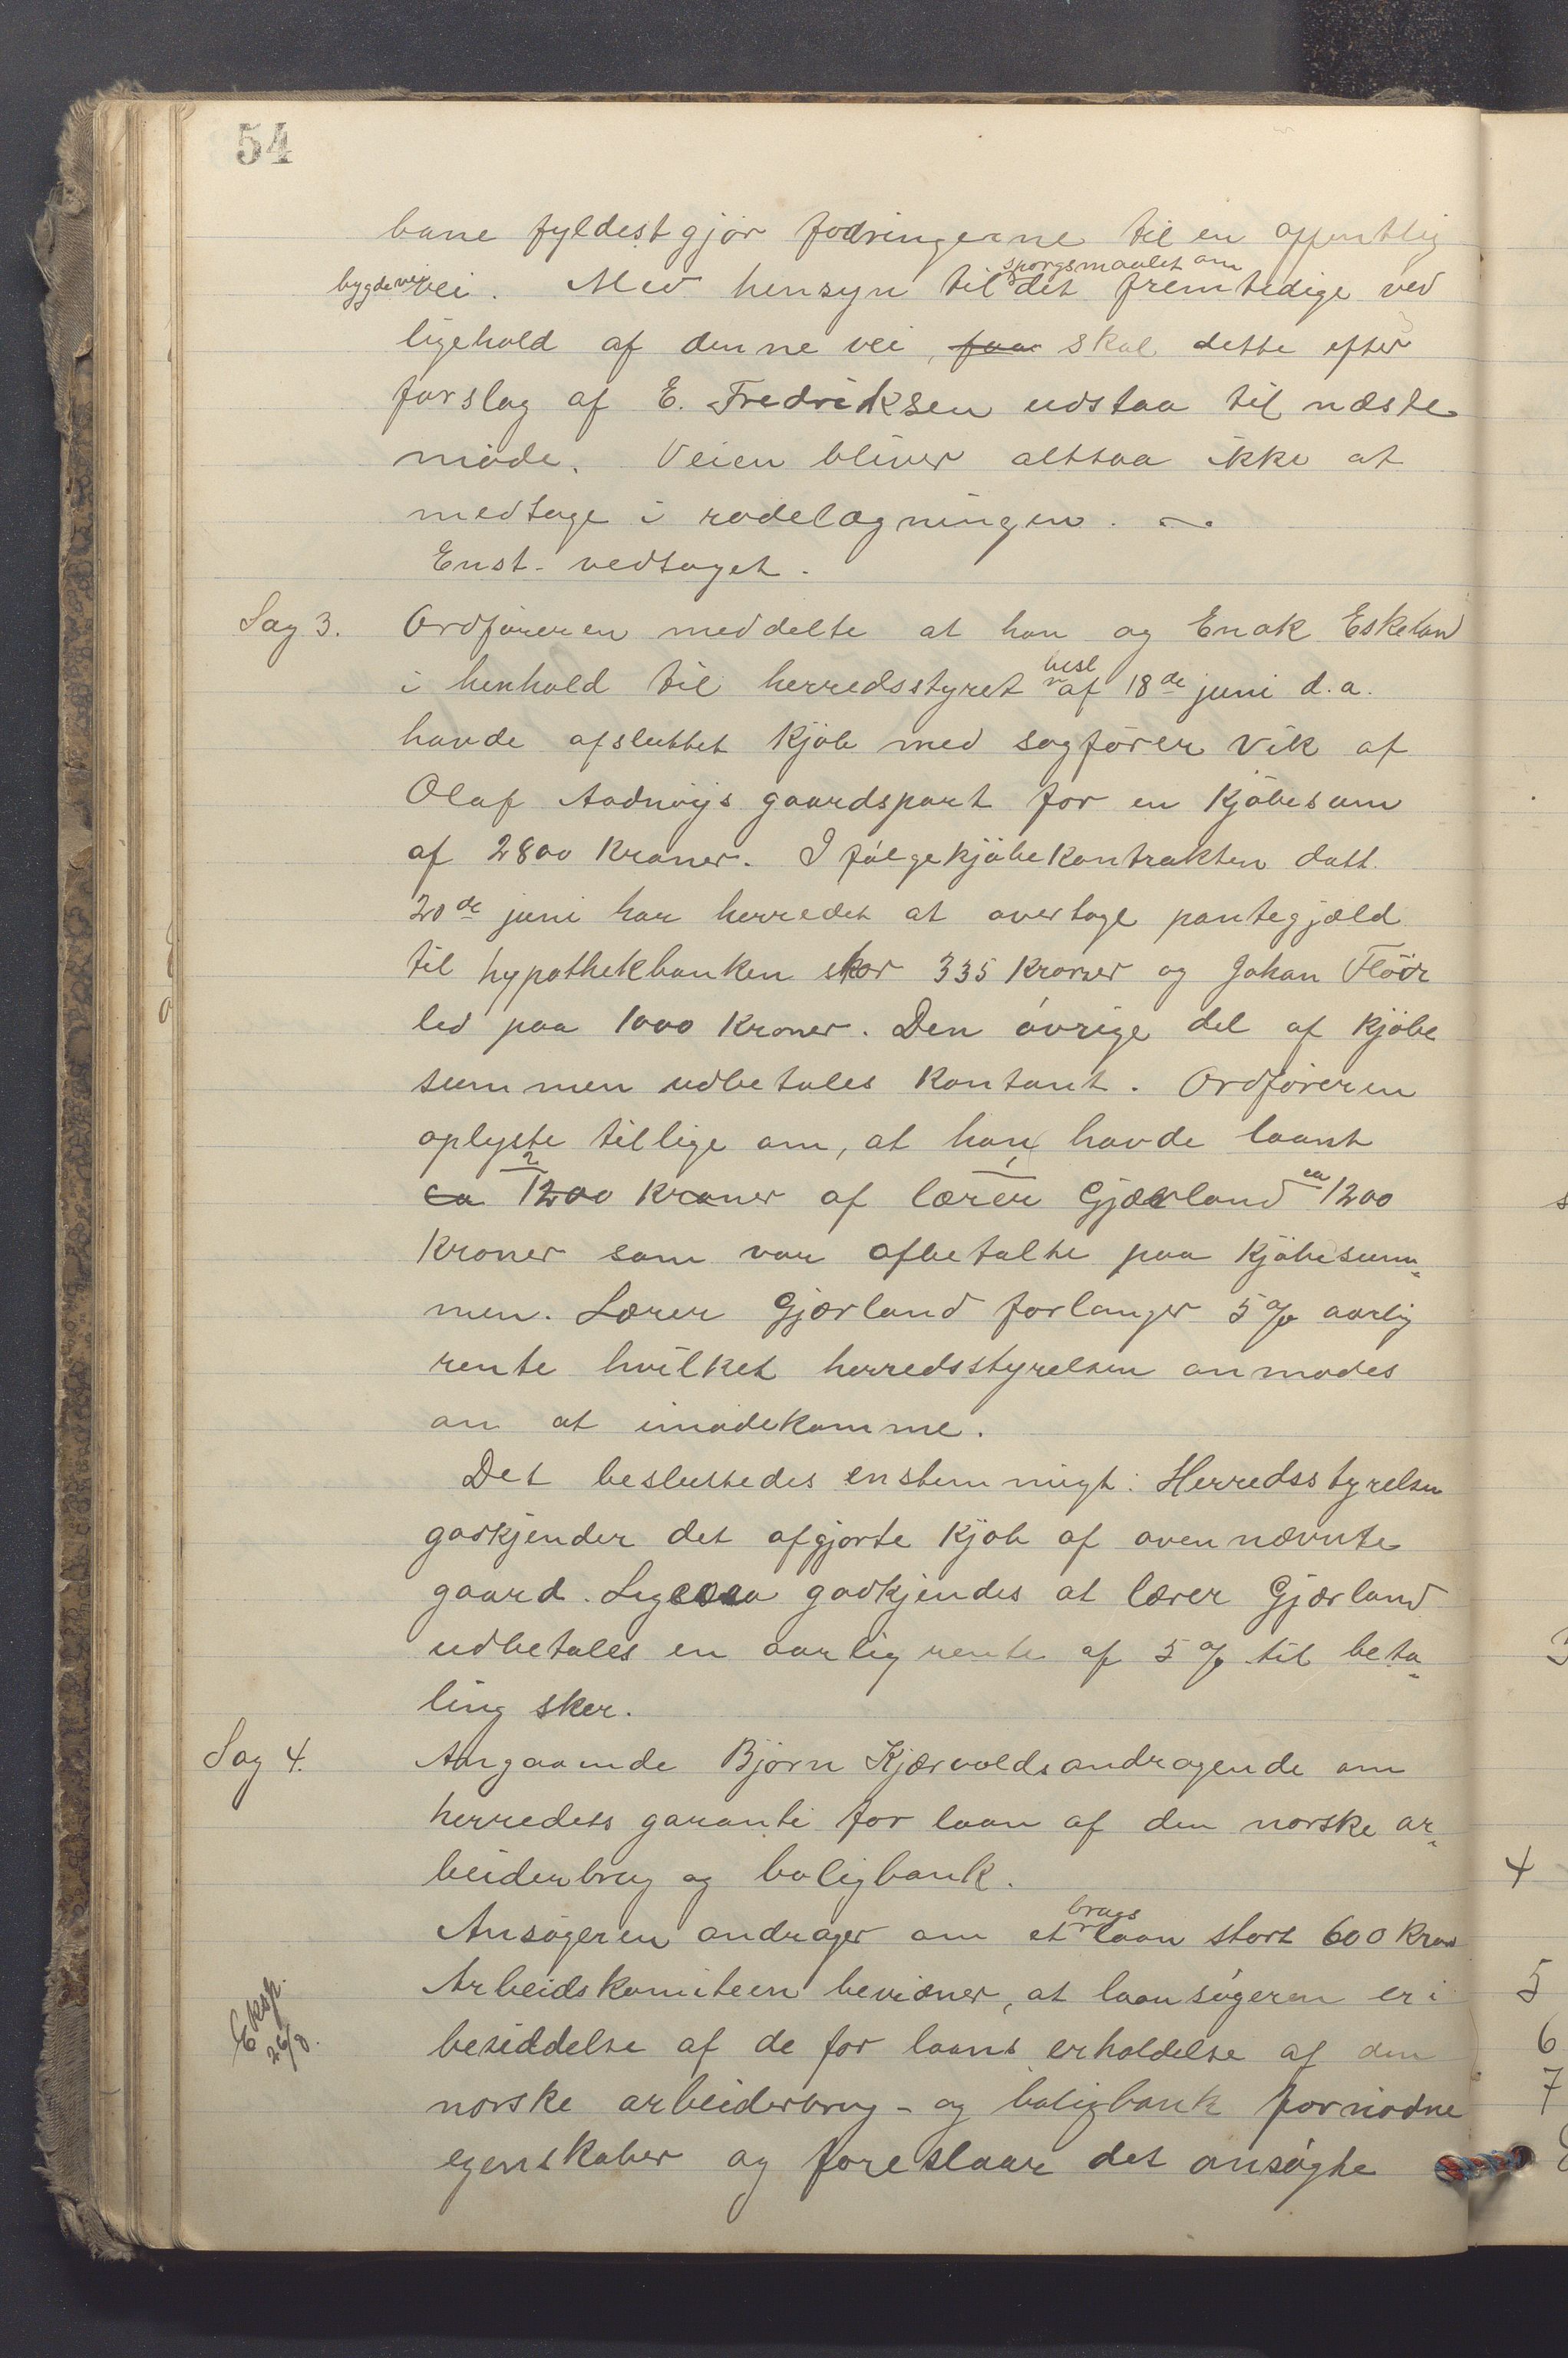 54
bane fyldestgjør fodringerne til en offentlig
bygdevei. Med hensyn til spørgsmaalet om det fremtidige ved
ligehold af denne vei, faa skal dette efter
forslag af E. Fredriksen udstaa til næste
møde. Veien bliver altsaa ikke at
medtage i rodelægningen.
Enst. vedtaget.
Sag 3. Ordføreren meddelte at han og Enok Eskeland
i henhold til herredsstyret besl af 18de juni d.a.
havde afsluttet kjøb med sagfører Vik af
Olaf Aadnøys gaardspart for en kjøbesum
af 2800 kroner. Ifølge kjøbekontrakten datt.
20de juni har herredet at overtage pantegjæld
til hypothekbanken stor 335 kroner og Johan
led paa 1000 kroner. Den øvrige del af kjøbe
summen udbetales kontant. Ordføreren
oplyste tillige om, at han havde laant
ca 1200 kroner af lærer Gjærland ca 1200
kroner som var afbetalte paa kjøbesum-
men. Lærer Gjærland forlanger 5 % aarlig
rente hvilket herredsstyrelsen anmodes
om at imødekomme.
Det besluttedes enstemmigt: Herredsstyrelsen
godkjender det afgjorte kjøb af ovennævnte
gaard. Ligesaa godkjendes at lærer Gjærland
udbetales en aarlig rente af 5 % til beta-
ling sker.
Sag 4. Angaaende Bjørn Kjærvolds andragende om
herredets garanti for laan af den norske ar-
beiderbrug og boligbank.
Ansøgeren andrager om et brugs laan stort 600 kroner
Arbeidskomiteen bevidner, at laansøgeren er i
Eksp. 26/8.
besiddelse af de for laans erholdelse af den
norske arbeiderbrug- og boligbank fornødne
egenskaber og foreslaar det ansøgte
4
5
6
7